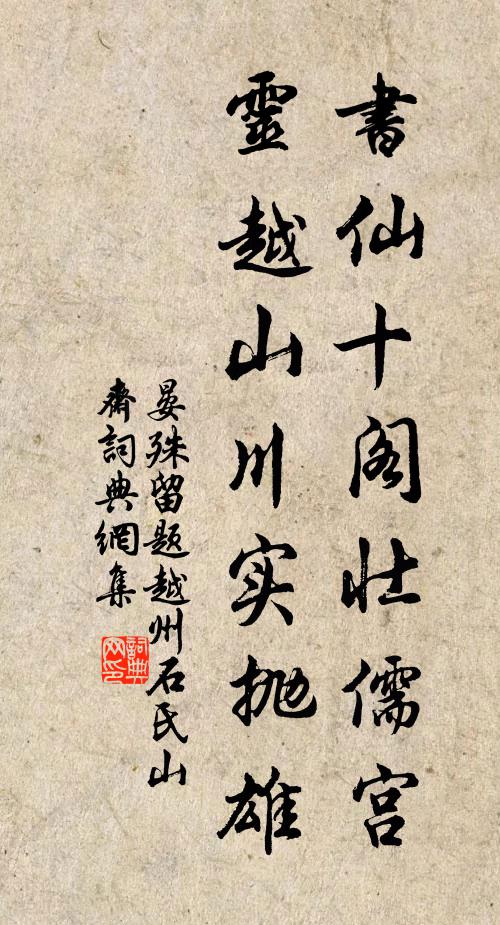 書仙十阁壮儒宫
靈越山川实抛雄
晏殊留题越州石氏山
齋詞典網集
詞典网印